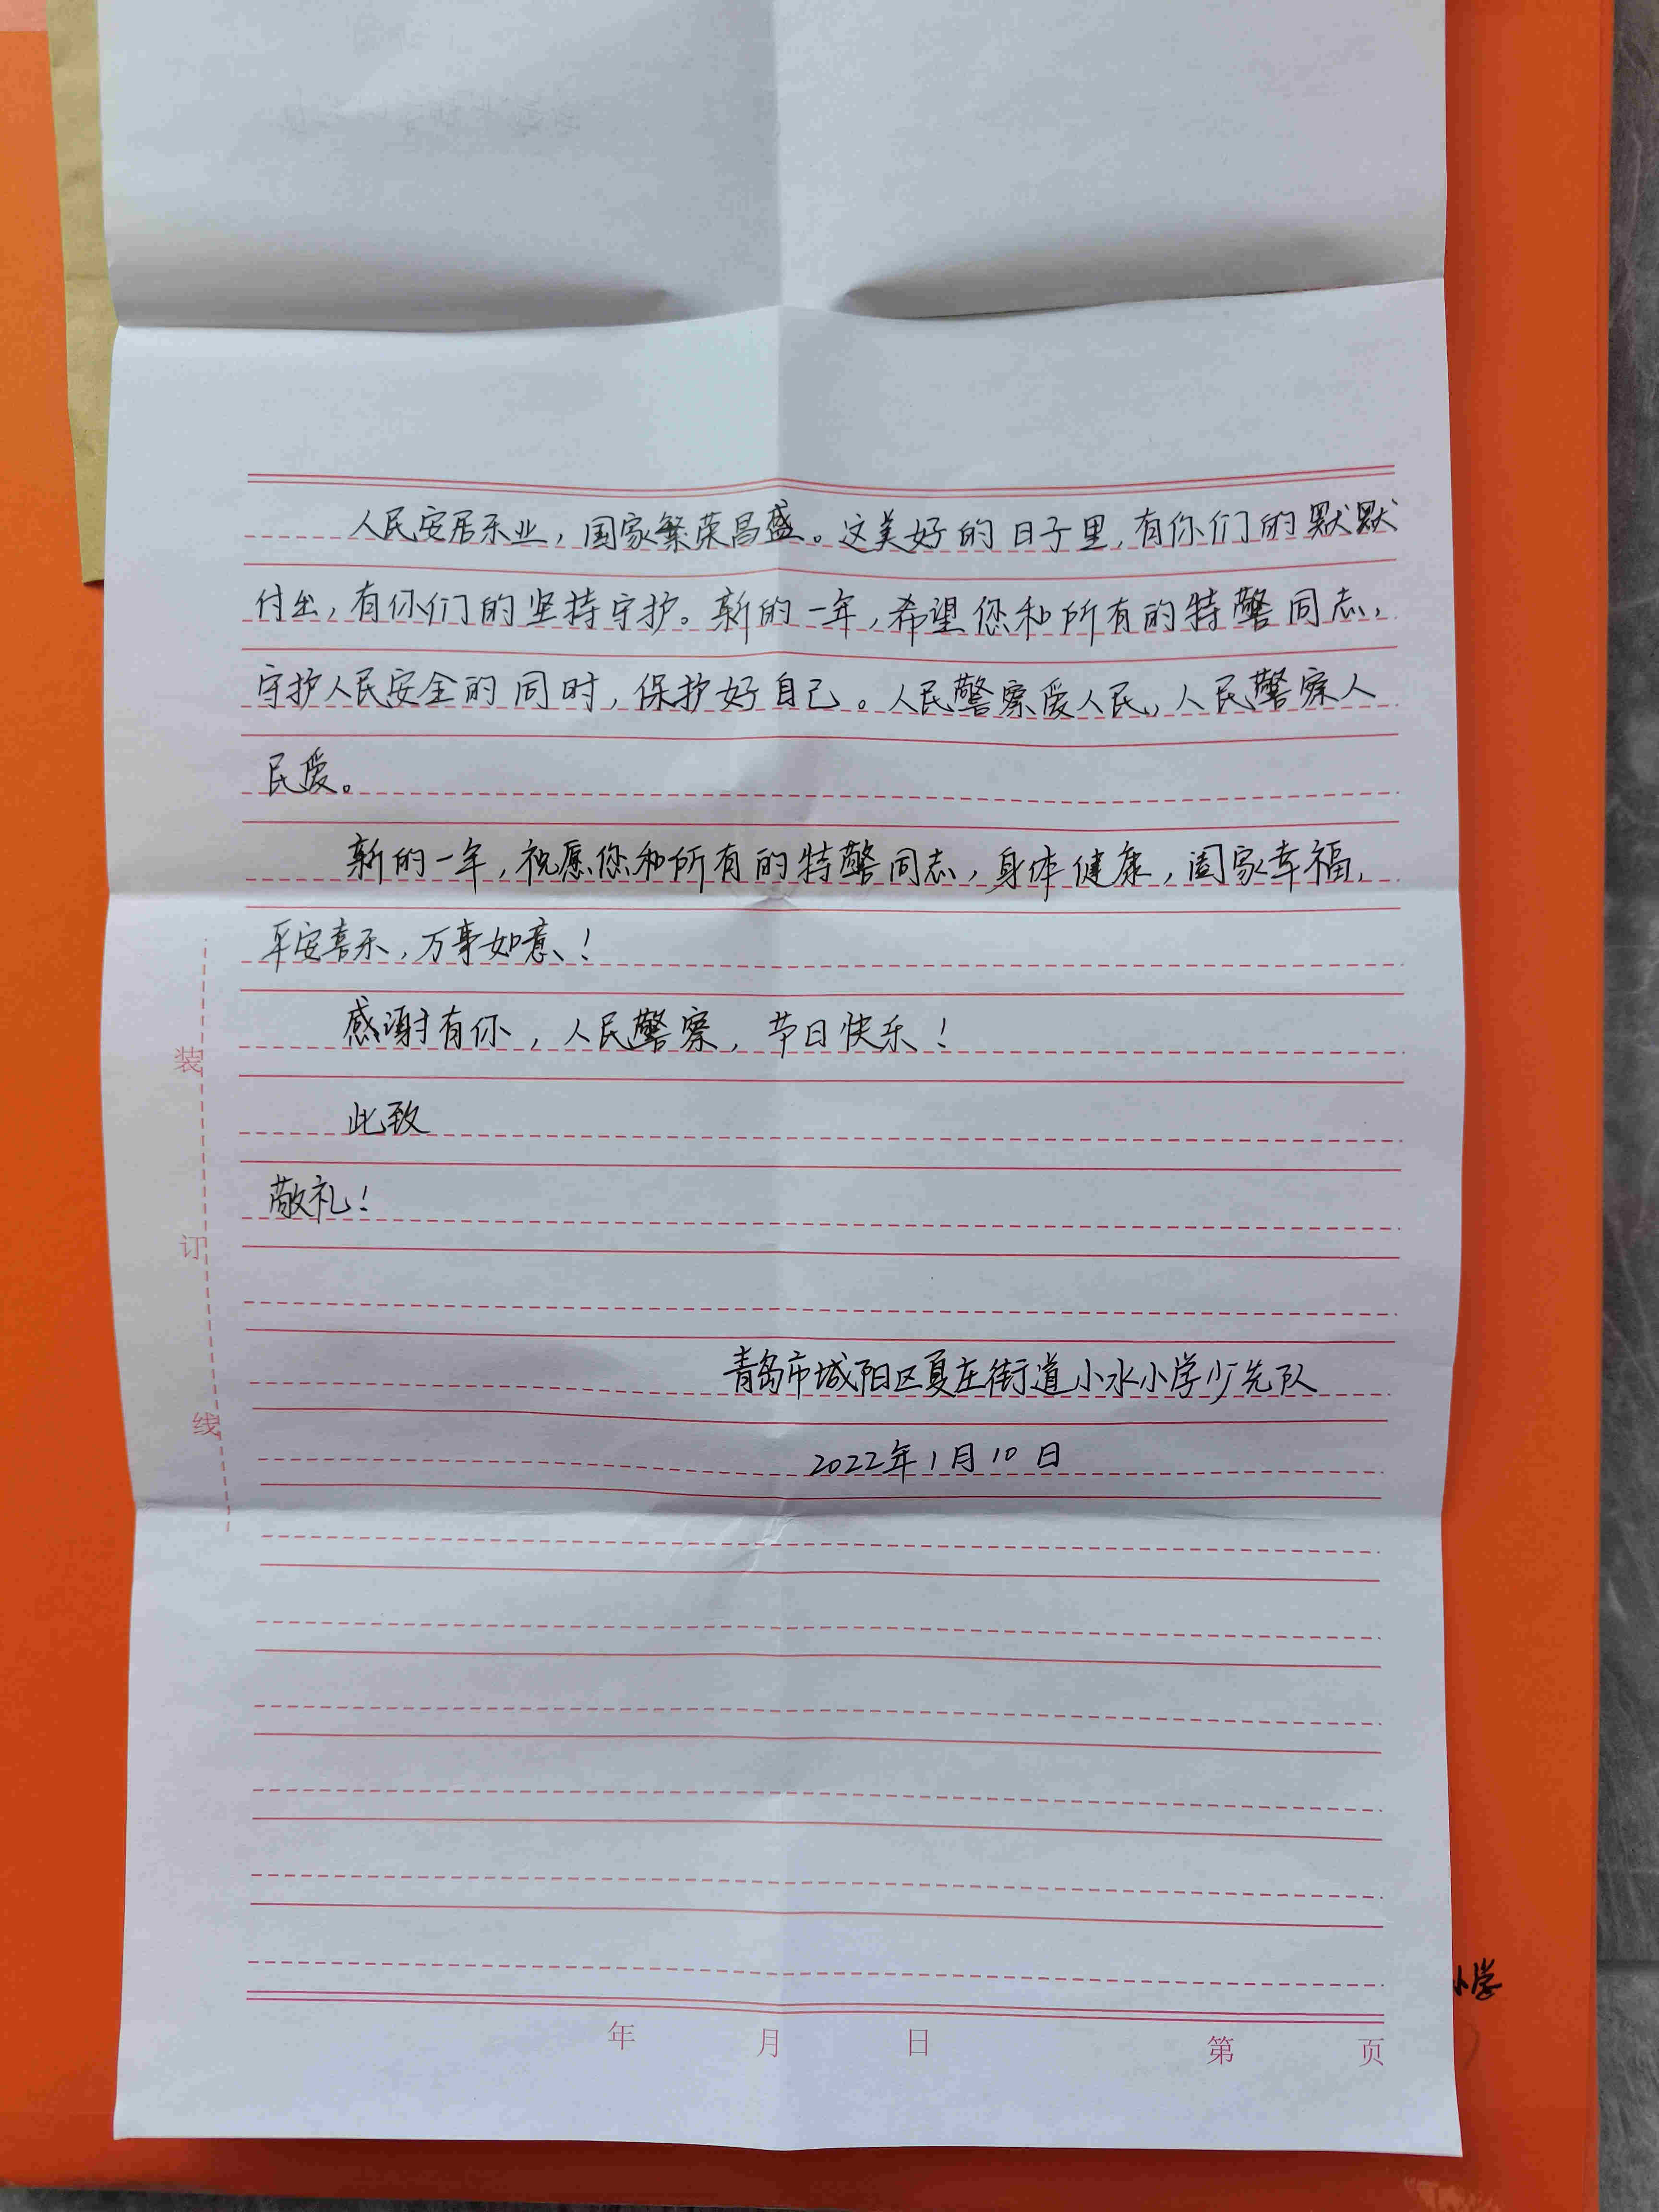 人民安居乐业，国家繁荣昌盛。这美好的日子里，有你们的默默
付出，有你们的坚持守护。新的一年，希望您和所有的特警同志，
守护人民安全的同时，保护好自己。人民警察爱人民，人民警察人
民爱。
新的一年，祝愿您和所有的特警同志，身体健康，阖家幸福，
平安喜乐，万事如意！
感谢有你，人民警察，节日快乐！
此致
敬礼！
青岛市城阳区夏庄街道小水小学少先队
2022年1月10日
装
订
线
小学
年 月 日 第 页